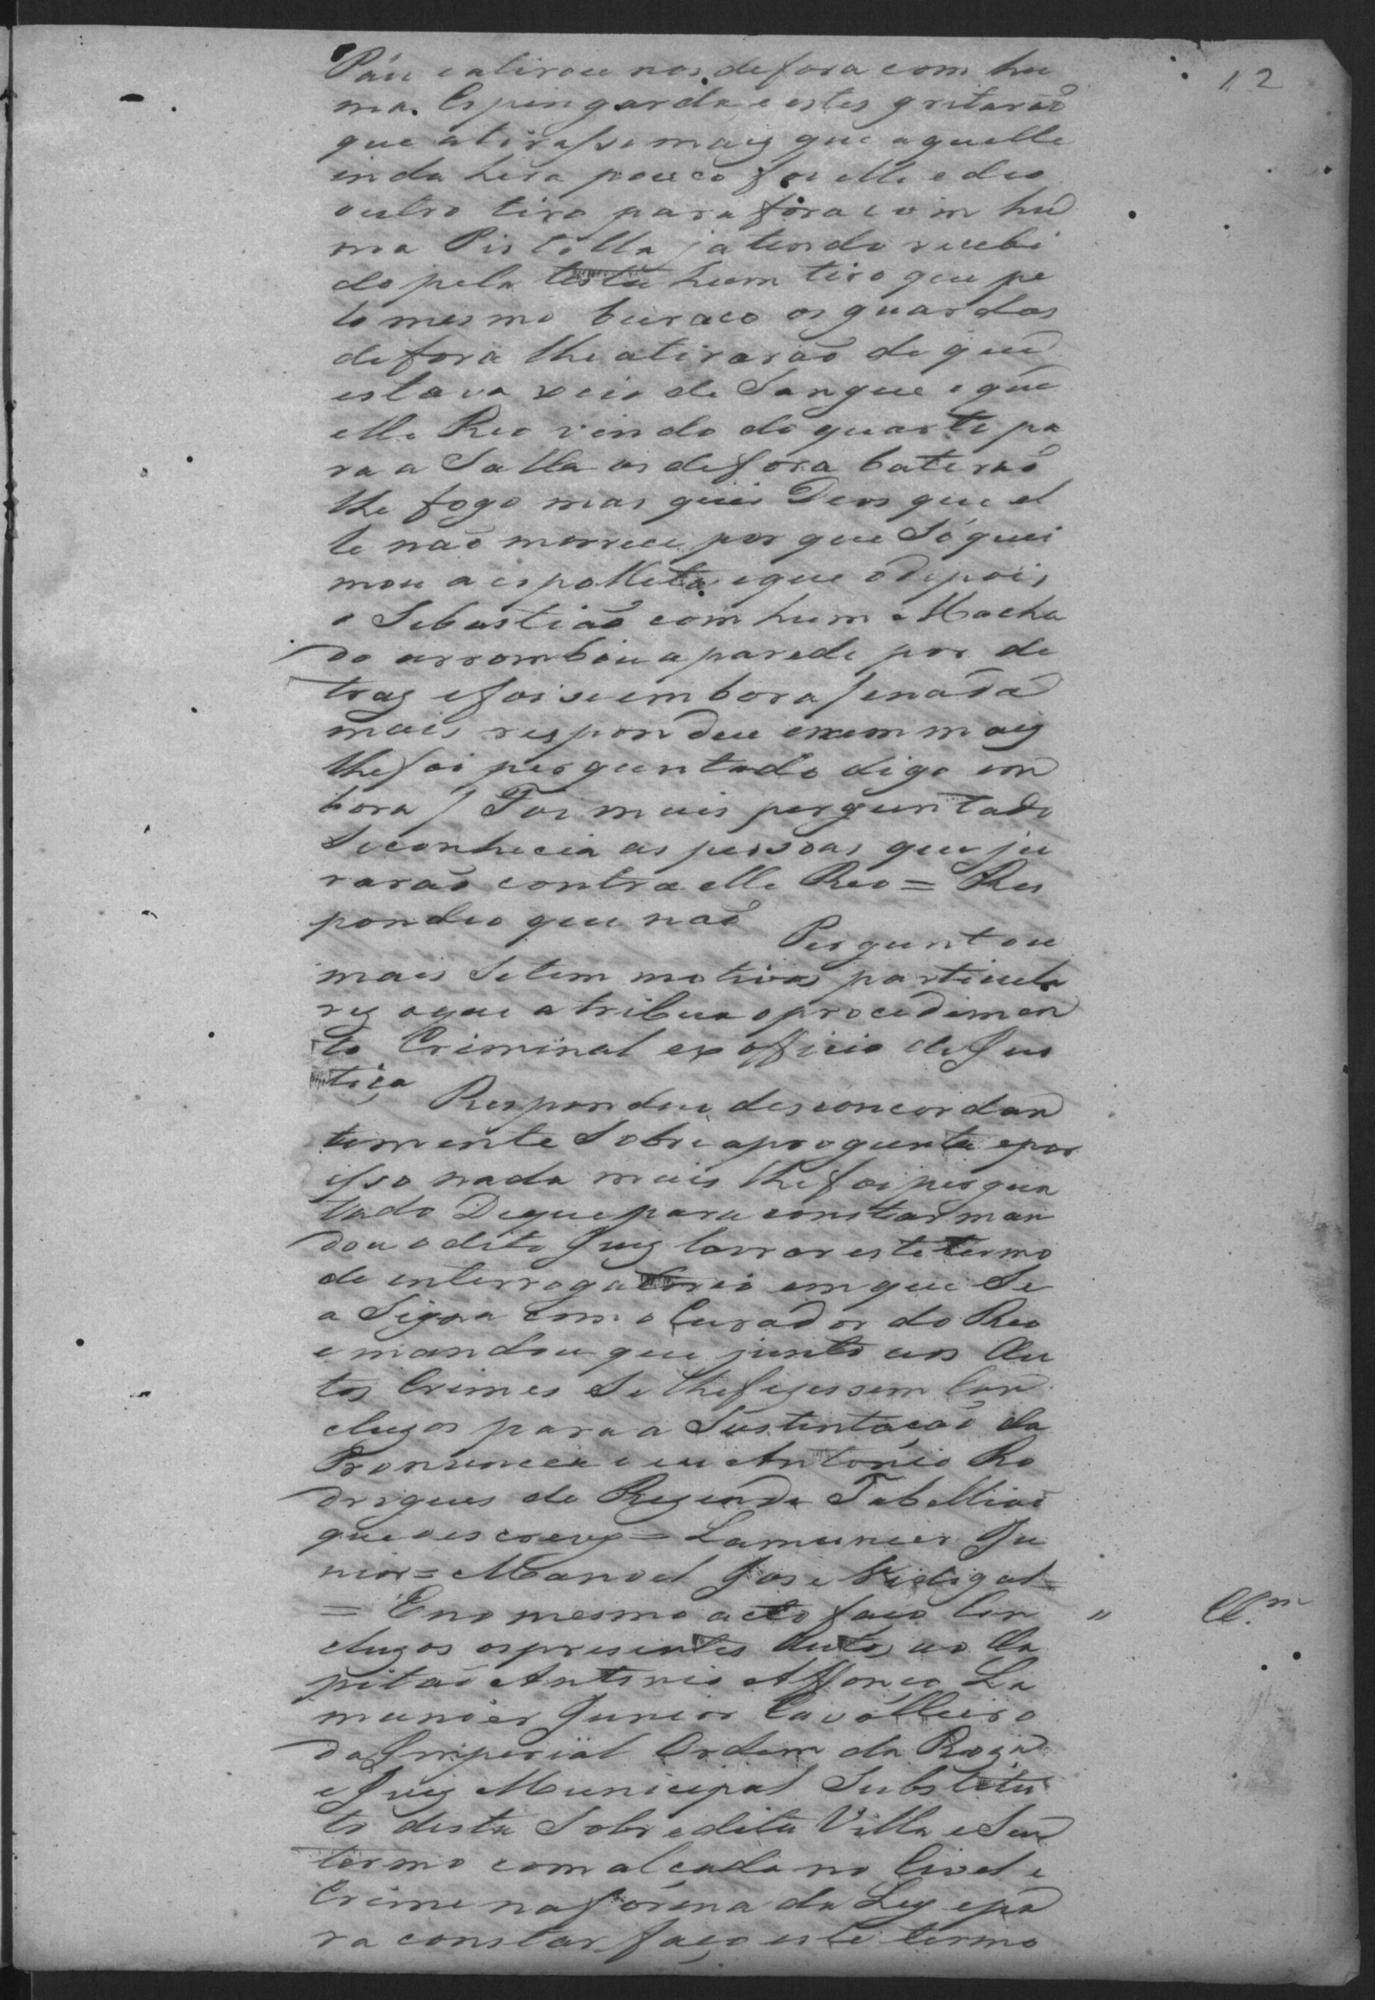 12
Páu e atirou nos de fora com hu
ma Espingarda e estes gritarão
que atirasse mais que aquelle
inda hera pouco foi elle e deo
outro tiro para fora com hu
ma Pistolla ja tendo recebi
do pela testa hum tiro que pe
lo mesmo buraco os guardas
de fora lhe atirarão de que
estava xeio de Sangue e que
elle Reo vindo do quarto pa
ra a Salla os de fora baterão
lhe fogo mas quis Deos que el
le não morreu por que Só quei
mou a espolleta e que odepois
o Sebastião com hum Macha
do arrombou a parede por de
traz e foi se embora / e nada
mais respondeu e nem mais
lhe foi perguntado digo em
bora / Foi mais perguntado
Se conhecia as pessoas que ju
rarão contra elle Reo = Res
pondeo que não
Perguntou
mais Se tem motivos particula
res a que atribua o procedimen
to Criminal ex officio de Jus
tiça
Respondeu desconcordan
temente Sobre a progunta e por
isso nada mais lhe foi pergun
tado De que para constar man
dou o dito Juiz lavrar este termo
de interrogatorio em que Se
a Signa com o Curador do Reo
e mandou que junto aos Au
tos Crimes Se lhe fizessem Con
cluzos para a Sustentação da
Pronuncia e eu Antonio Ro
drigues de Rezende Tabellião
que o escrevy = Lamunier Ju
nior = Manoel Jose Vidigal =
= E no mesmo acto faço Con " Cl.ᵐ
cluzos os presentes Autos ao Ca
pitão Antonio Affonço La
munier Junior Cavalleiro
da Imperial Ordem da Roza
e Juiz Municipal Substitu
to desta Sobredita Villa e Seu
termo com alçada no Civel e
Crime na forma da Ley e pa
ra constar faço este termo